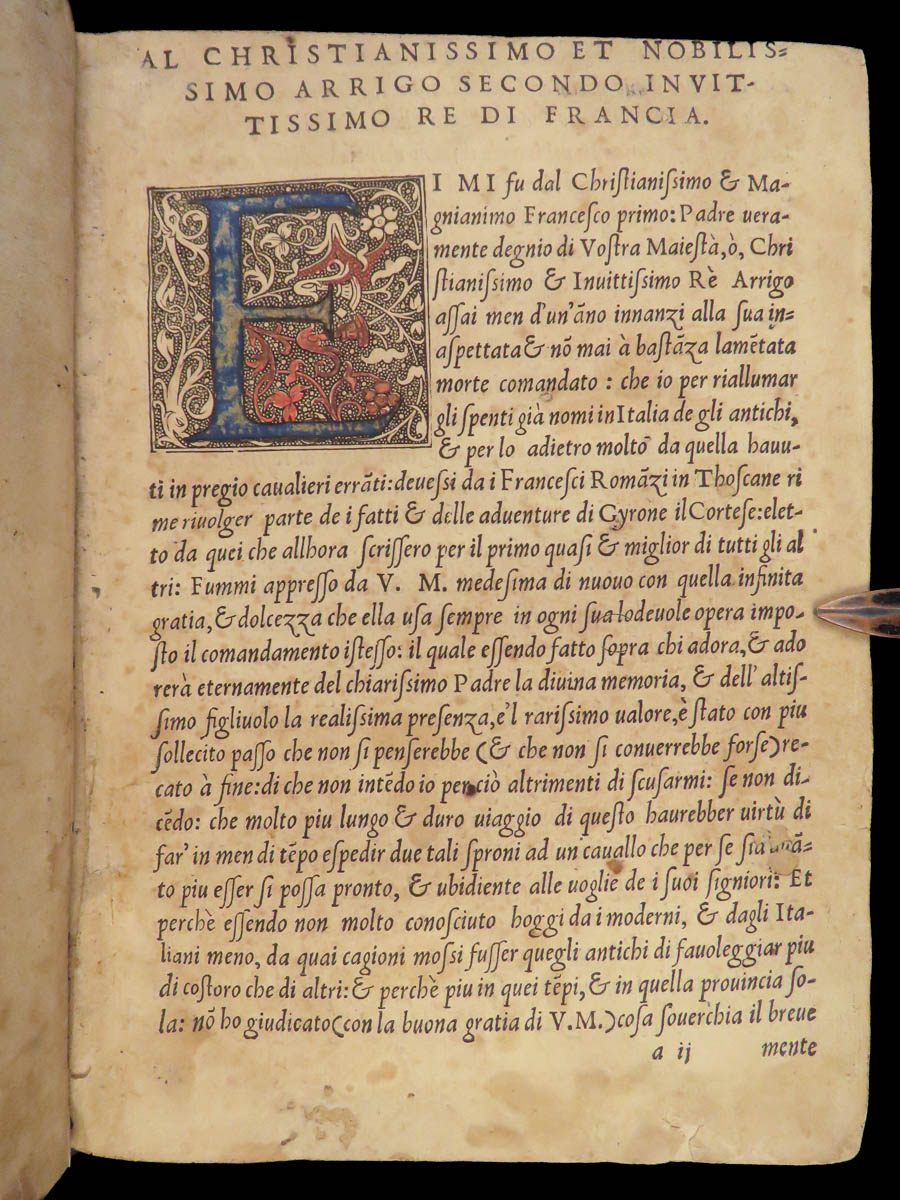 AL CHRISTIANISSIMO ET NOBILIS=
SIMO ARRIGO SECONDO INVIT-
TISSIMO RE DI FRANCIA.
EI MI fu dal Chriſtianiſsimo & Ma-
gnianimo Franceſco primo: Padre uera-
mente degnio di Voſtra Maieſtà, ò, Chri
ſtianiſsimo & Inuittiſsimo Rè Arrigo
aſſai men d'un'ãno innanzi alla ſua in=
aſpettata & nõ mai à baſtãza lamẽtata
morte comandato : che io per riallumar
gli ſpenti già nomi in Italia de gli antichi,
& per lo adietro molto da quella hauu-
ti in pregio caualieri errãti: deueſsi da i Franceſci Romãzi in Thoſcane ri
me riuolger parte de i fatti & delle aduenture di Gyrone il Corteſe: elet-
to da quei che allhora ſcriſſero per il primo quaſi & miglior di tutti gli al
tri: Fummi appreſſo da V. M. medeſima di nuouo con quella infinita
gratia, & dolcezza che ella uſa ſempre in ogni ſua lodeuole opera impo-
ſto il comandamento iſteſſo: il quale eſſendo fatto ſopra chi adora, & ado
rerà eternamente del chiariſsimo Padre la diuina memoria, & dell' altiſ-
ſimo figliuolo la realiſsima preſenza, e'l rariſsimo ualore, è ſtato con piu
ſollecito paſſo che non ſi penſerebbe (& che non ſi conuerrebbe forſe) re-
cato à fine: di che non intẽdo io perciò altrimenti di ſcuſarmi: ſe non di-
cẽdo: che molto piu lungo & duro uiaggio di queſto haurebber uirtù di
far' in men di tẽpo eſpedir due tali ſproni ad un' cauallo che per ſe ſia
to piu eſſer ſi poſſa pronto, & ubidiente alle uoglie de i ſuoi ſigniori: Et
perchè eſſendo non molto conoſciuto hoggi da i moderni, & dagli Ita-
liani meno, da quai cagioni moſsi fuſſer quegli antichi di fauoleggiar piu
di coſtoro che di altri: & perchè piu in quei tẽpi, & in quella prouincia ſo-
la: nõ ho giudicato (con la buona gratia di V. M.) coſa ſouerchia il breue
a ij mente